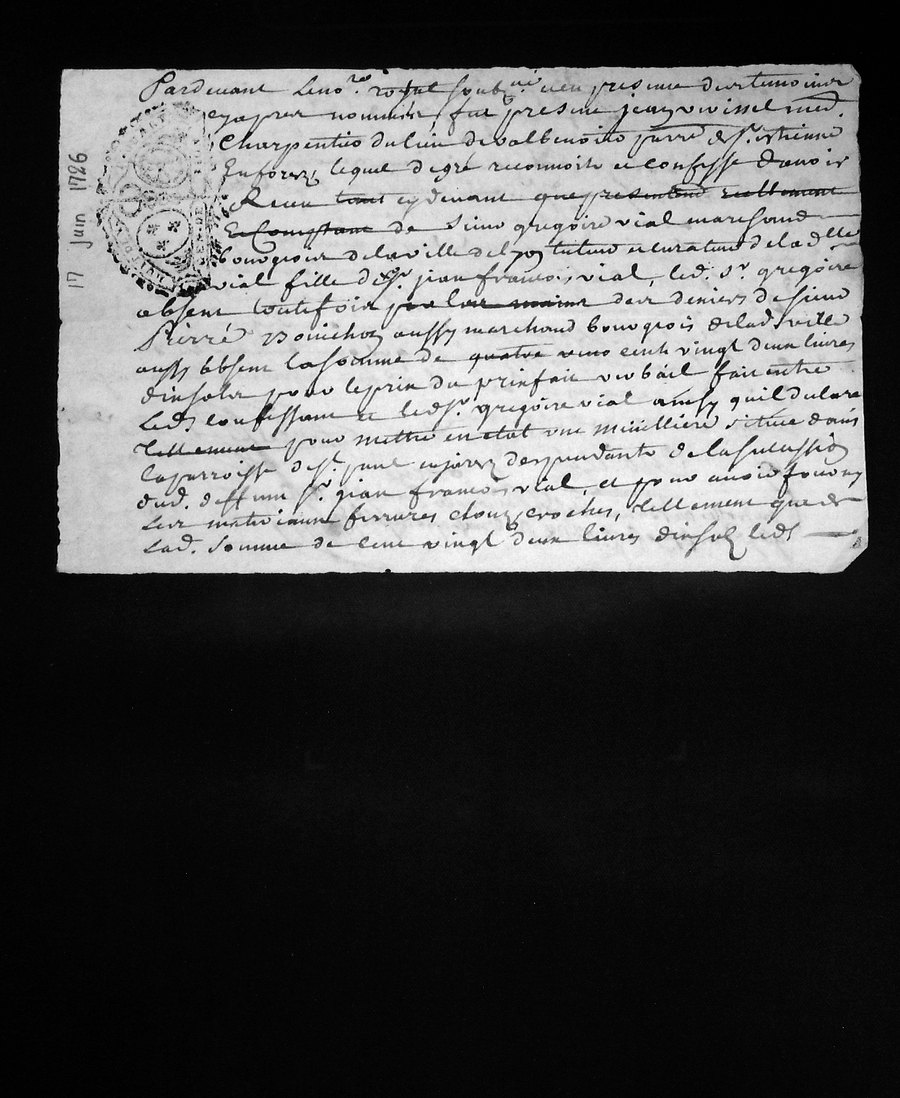 17 juin 1726
Pardevant le no.re royal soubz.né en presence des temoins
cy apres nommés, fut present jean
Charpentier du lieu de valbenoite parr.e de S.t estienne
En forez, lequel de gré reconnoit et confesse d'avoir
Receu tant cy devant que presentend reellement
Et Comptant de Sieur gregoire vial marchand
bourgeois de la ville de lyon tuteur et curateur de la d.lle
vial fille de S.r jean francois vial, led. S.r gregoire
absent toutefois par les mains des deniers de sieur
Pierre aussy marchand bourgeois de lad. ville
aussy absent la somme de quatre vins cent vingt deux livres
dix sols pour le prix du prix fait verbail fait entre
Led. confessant et led. S.r gregoire vial ainsy quil declare
tellement pour mettre en etat une située dans
la parroisse de S.t paul en jarez dependante de la sucession
dud. deffunt S.r jean francois vial, et pour avoir fourny
les materiaux ferrures cloux, croches, tellement que de
Lad. Somme de cent vingt deux livres dix sols led.